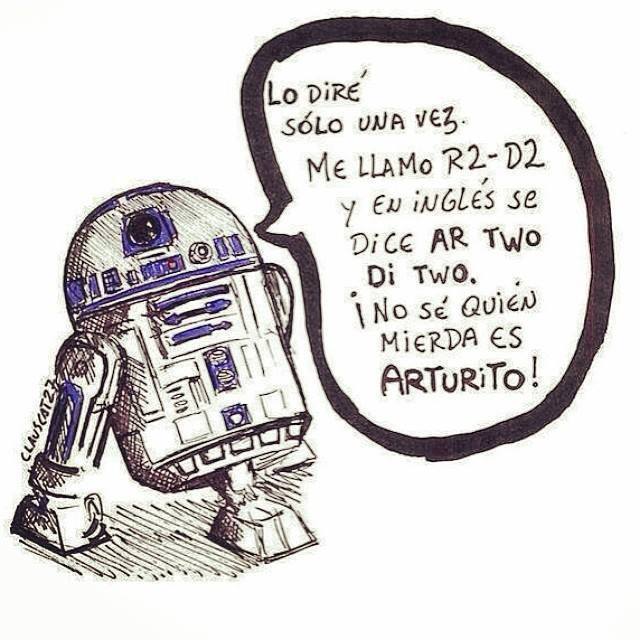 Lo diré
sólo una vez.
Me llamo R2-D2
y en inglés se
dice AR TWO
DI TWO.
¡No sé quién
mierda es
ARTURITO!
CLAUSCAT27